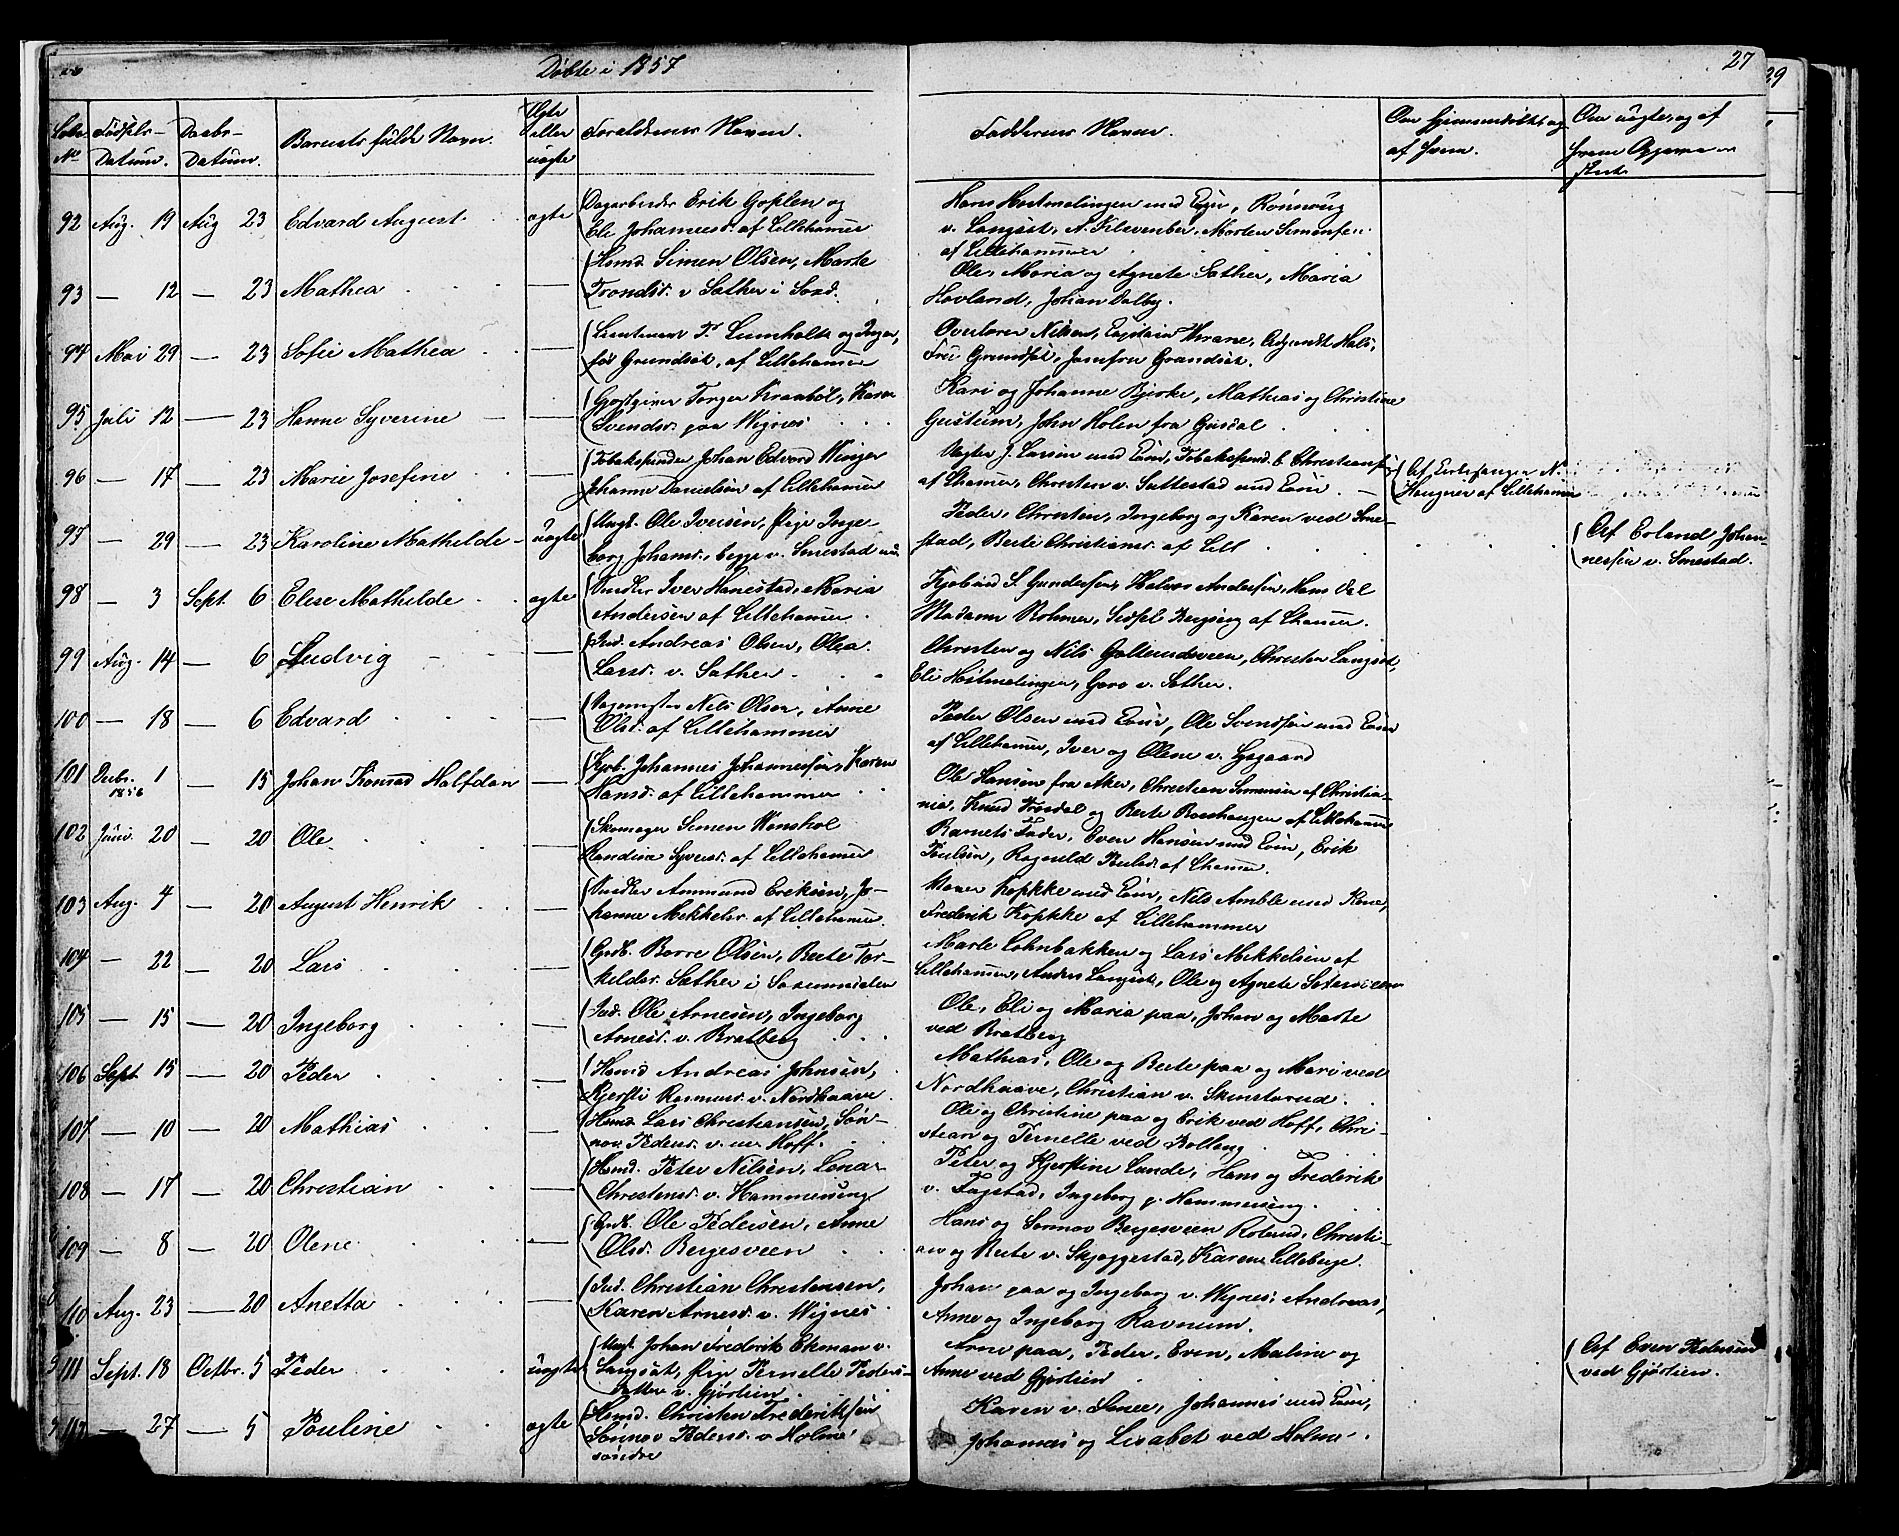 Döbte i 1857
27
29
Lobe No. Födsels-Datum. Daabs-Datum. Barnets fulde Navn. Ægte eller uægte Forældrenes Navn. Faddernes Navn. Om hjemmedöbt og af hvem. Om uægte, og af
92 Aug. 19 Aug 23 Edvard August ægte Dagarbeider Erik Goplen og
Eli Johannesd. af Lillehamer
Rönnoug
v. Langset, Morten Simensen
af Lillehammer
93 — 12 — 23 Mathea — Hsmd. Simen Olsen, Marte
Trondsd. v. Sæther i Saxd.
Ole, Maria og Agnete Sæther, Maria
Hovland, Johan Dalby.
94 Mai 29 — 23 Sofie Mathea — Lieutenant P. Lumholtz og Inge-
Grundset, af Lillehamer
Nilsen, Capitain Krane,
Fru Grundset, Jomfru Grundset.
95 Juli 12 — 23 Hanne Syverine — Gjestgiver Torger Kraaböl, Karen
Svendsd. paa Wignes
Kari og Johanne Bjerke, Mathias og Christine
John Holen fra Gusdal
96 — 17 — 23 Marie Josefine — Tobaksspinder Johan Edvard Winger
Johanne Danielsen af Lillehamer
J. Larsen med Kone, Tobaksspind. C. Christiansen
af Lhamer, Christen v. Sattestad med Kone
af Lillehamer
97 — 29 — 23 Karoline Mathilde uægte Ungk. Ole Iversen, Pige Inge-
borg Johansd. begge v. Smestad
Peder, Christen, Ingeborg og Karen ved Sme-
stad, Berte Christiansd. af Lill
Af Erland Johan-
nessen v. Smestad.
98 — 3 Sept. 6 Elise Mathilde ægte Snedker Iver Hanestad, Maria
Andersen af Lillehamer
S. Gundersen, Halvor Andersen, Hans Dal
Madame Rohmer, Sidsel Bergseng af Lhamer.
99 Aug. 14 — 6 Ludvig — Ind. Andreas Olsen, Olea
Larsd. v. Sæther
Christen og Nils Christen Langset,
Eli Goro v. Sæther.
100 — 18 — 6 Edvard — Nils Olsen, Anne
Olsd. af Lillehammer
Peder Olsen med Kone, Ole Svendsen med Kone
af Lillehamer, Iver og Olene v. Lysgaard
101 Decbr. 1 1856 — 15 Johan Konrad Halfdan — Kjöb. Johannes Johannessen, Karen
Hansd. af Lillehammer
Ole Hansen fra Aker, Christian Sörensen af Christia-
nia, Knud Trosdal og Berte af Lillehamer
102 Juni 20 — 20 Ole — Skomager Simen Wenshol
Randine Syversd. af Lillehamer
Barnets Fader, Even Hansen med Kone, Erik
Poulsen, Ragnild Poulsd. af Lhamer.
103 Aug. 4 — 20 August Henrik — Snedker Ammund Eriksen, Jo-
hanne Mikkelsd. af Lillehamer
Kopkke med Kone, Nils Amble med Kone,
Frederik Kopkke af Lillehammer
104 — 22 — 20 Lars — Grdb. Borre Olsen, Berte Tor-
kildsd. Sæther i
Marte og Lars Mikkelsen af
Lillehamer, Anders Langset, Ole og Agnete
105 — 15 — 20 Ingeborg — Ind. Ole Arnesen, Ingeborg
Arnesd. v. Bratberg
Ole, Eli og Maria paa, Johan og Marte
ved Bratberg
106 Sept 15 — 20 Peder — Hsmd Andreas Johnsen,
Kjersti Rasmusd. v. Nordhaave
Mathias, Ole og Berte paa og Mari ved
Nordhaave, Christian v. Skinstarud
107 — 10 — 20 Mathias — Hsmd. Lars Christiansen, Sön-
nov Pedersd. v. Hoff.
Ole og Christine paa og Erik ved Hoff, Chri-
stian og Pernelle ved
108 — 17 — 20 Christian — Hsmd. Peter Nilsen, Lena
Christensd. v. Hammerseng
Peter og Kjerstine Lunde, Hans og Frederik
v. Fagstad, Ingeborg p. Hammerseng
109 — 8 — 20 Olene — Grdb. Ole Pedersen, Anne
Olsd. Bergesveen
Hans og Sönnov Bergesveen Christi-
an og Berte v. Skjeggestad, Karen Lilleberge.
110 Aug. 23 — 20 Anetta — Ind. Christian Christensen,
Karen Arnesd. v. Wignes
Johan paa og Ingeborg v. Wignes, Andreas,
Anne og Ingeborg Ravnum.
111 Sept. 18 Octbr. 5 Peder uægte Ungk. Johan Frederik Ekman v.
Langset, Pige Pernelle Peders-
datter v. Gjörlien
Arne paa, Peder, Even, Malene og
Anne ved Gjörlien
Af Even Pedersen
ved Gjörlien.
112 — 27 — 5 Pouline ægte Hsmd. Christen Frederiksen
Sönnov Pedersd. v. Holme
söndre
Karen v. Johannes med Kone,
Johannes og Lisabet ved Holme